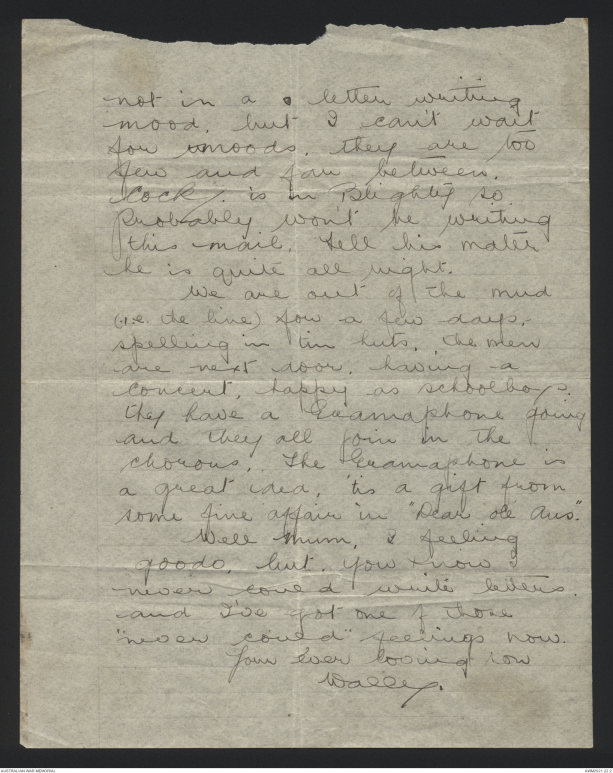 not in a letter writing
mood, but I can't wait
for moods, they are too
few and far between.
Cocky is in Blighty so
Probably won't be writing
this mail. Tell his mater
he is quite all right.
We are out of the mud
(i.e. the line) for a few days,
spelling in tin huts. The men
are next door, having a
concert, happy as schoolboys
they have a Gramaphone going
and they all join in the
chorous. The Gramaphone is
a great idea, 'tis a gift from
some fine affair in "Dear ole Aus".
Well Mum, I feeling
goodo, but you know I
never could write letters
and I've got one of those
"never could" feelings now.
Your ever loving son
Wally.
AUSTRALIAN WAR MEMORIAL